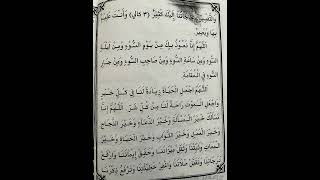 وَالتَّقْصِيْرُ فِيْ حَاجَاتِنَا إِلَيْكَ كَثِيْرٌ (٣ كالي) وَأَنْتَ عَلِيْمٌ
بِهَا وَبَصِيْرٌ
اَللّٰهُمَّ إِنَّا نَعُوْذُ بِكَ مِنْ يَوْمِ السُّوْءِ وَمِنْ لَيْلَةِ
السُّوْءِ وَمِنْ سَاعَةِ السُّوْءِ وَمِنْ صَاحِبِ السُّوْءِ وَمِنْ جَارِ
السُّوْءِ فِي الْمُقَامَةِ
اَللّٰهُمَّ اجْعَلِ الْحَيَاةَ زِيَادَةً لَنَا فِيْ كُلِّ خَيْرٍ
وَاجْعَلِ الْمَوْتَ رَاحَةً لَنَا مِنْ كُلِّ شَرٍّ اَللّٰهُمَّ إِنَّا
نَسْأَلُكَ خَيْرَ الْمَسْأَلَةِ وَخَيْرَ الدُّعَاءِ وَخَيْرَ النَّجَاحِ
وَخَيْرَ الْعَمَلِ وَخَيْرَ الثَّوَابِ وَخَيْرَ الْحَيَاةِ وَخَيْرَ
الْمَمَاتِ وَثَبِّتْنَا وَثَقِّلْ مَوَازِيْنَنَا وَحَقِّقْ إِيْمَانَنَا وَارْفَعْ
دَرَجَاتِنَا وَتَقَبَّلْ صَلَاتَنَا وَاغْفِرْ خَطِيْئَاتِنَا